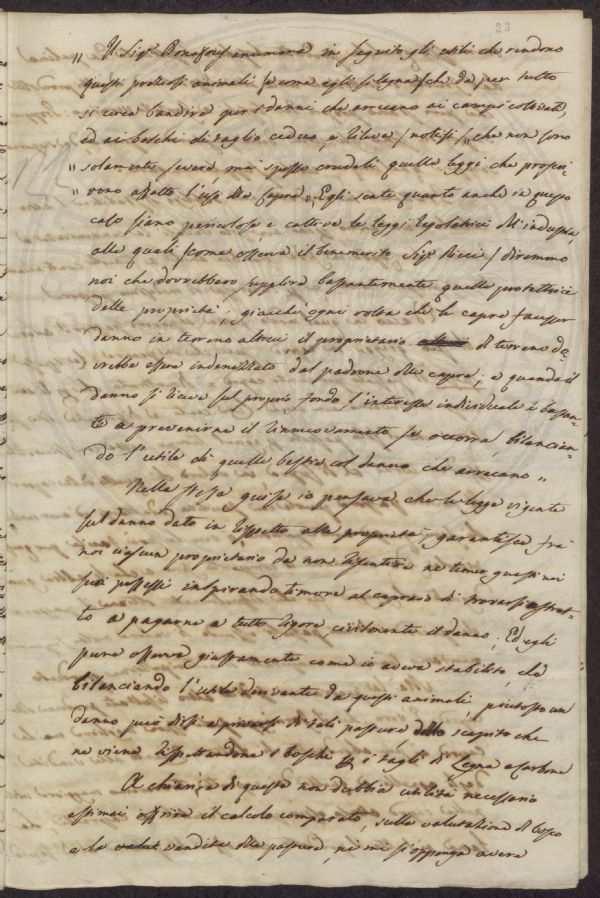 23
„ Il Sig.r Bonafous enumera in seguito gli utili che rendono
questi preziosi animali / e come egli si lagna / che da per tutto
si cerca bandire per i danni che arrecano ai campi coltivati,
ed ai boschi di taglio ceduo, e rileva / notisi / „ che non sono
„ solamente severe, ma spesso crudeli quelle leggi che proscri-
„ vono affatto l'uso delle capre „ Egli sente quanto anche in questo
caso siano pericolose e cattive le leggi regolatrici dell'industria,
alle quali / come osserva il benemerito Sig.r Ricci / diremmo
noi che dovrebbero supplire bastantemente quelle protettrici
delle proprietà; giacchè ogni volta che le capre facesser
danno in terreno altrui, il proprietario del terreno do-
vrebbe essere indennizzato dal padrone delle capre; e quando il
danno si riceve sul proprio fondo l'interesse individuale è bastan-
te a prevenirne il rinnuovamento, se occorra, bilancian-
do l'utile di quelle bestie col danno che arrecano „
Nella stessa guisa io pensava che la legge vigente
sul danno dato in rispetto alla proprietà, garantisca frà
noi ciascun proprietario da non risentire ne temere guasti nei
suoi possessi, inspirando timore al capraio di trovarsi astret-
to a pagarne a tutto rigore, civilmente il danno; Ed egli
pure osserva giustamente come io aveva stabilito, che
bilanciando l'utile derivante da questi animali, piuttosto un
danno può dirsi a privarsi di tali pasture, dello scapito che
ne viene rispettandone i boschi e i tagli di Legna e Carbone
A chiarire di questa non dubbia utilità necessario
estimai offrire il calcolo comparato, sulla valutazione di
e la vendita della pastura, ne mi si opponga avere